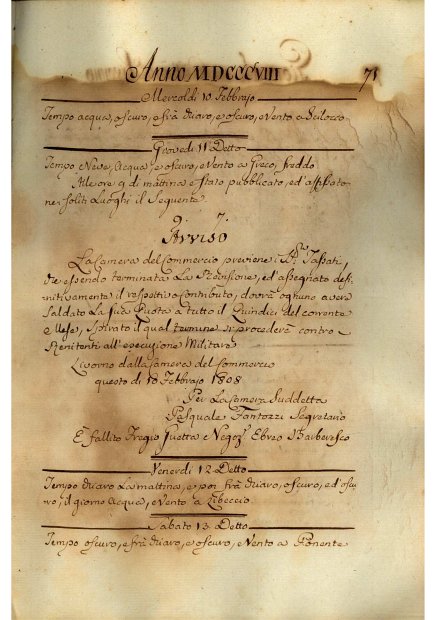 Anno MDCCCVIII 71
Mercoldi 10 Febbrajo
Tempo acqua, oscuro, e frà chiaro, e oscuro, e Vento a Scilocco
Giovedi 11 Detto
Tempo Neve, Acqua, e oscuro, e Vento a Greco, freddo
Alle ore 9 di mattina è stato pubblicato, ed' affisato
ne soliti Luoghi il Seguente
9. 7.
Avviso
La Camera del Commercio previene i SS.ri Tassati,
che essendo terminata La Revisione, ed' assegnato defi-
nitivamente il respettivo Contributo, dovrà ognuno avere
Saldato La sua Quota a tutto il Quindici del corrente
Mese, Spirato il qual termine si procederà contro i
Renitenti all'esecuzione Militare
Livorno dalla Camera del Commercio
questo di 10 Febbrajo 1808
Per La Camera Suddetta
Pasquale Fantozzi Segretario
E fallito Guetta e Negoz.e Ebreo Barberesco
Venerdi 12 Detto
Tempo chiaro La mattina, e poi frà chiaro, oscuro, ed oscu-
ro, il giorno Acqua, e Vento a Libeccio
Sabato 13 Detto
Tempo oscuro, e frà chiaro, e oscuro, e Vento a Ponente